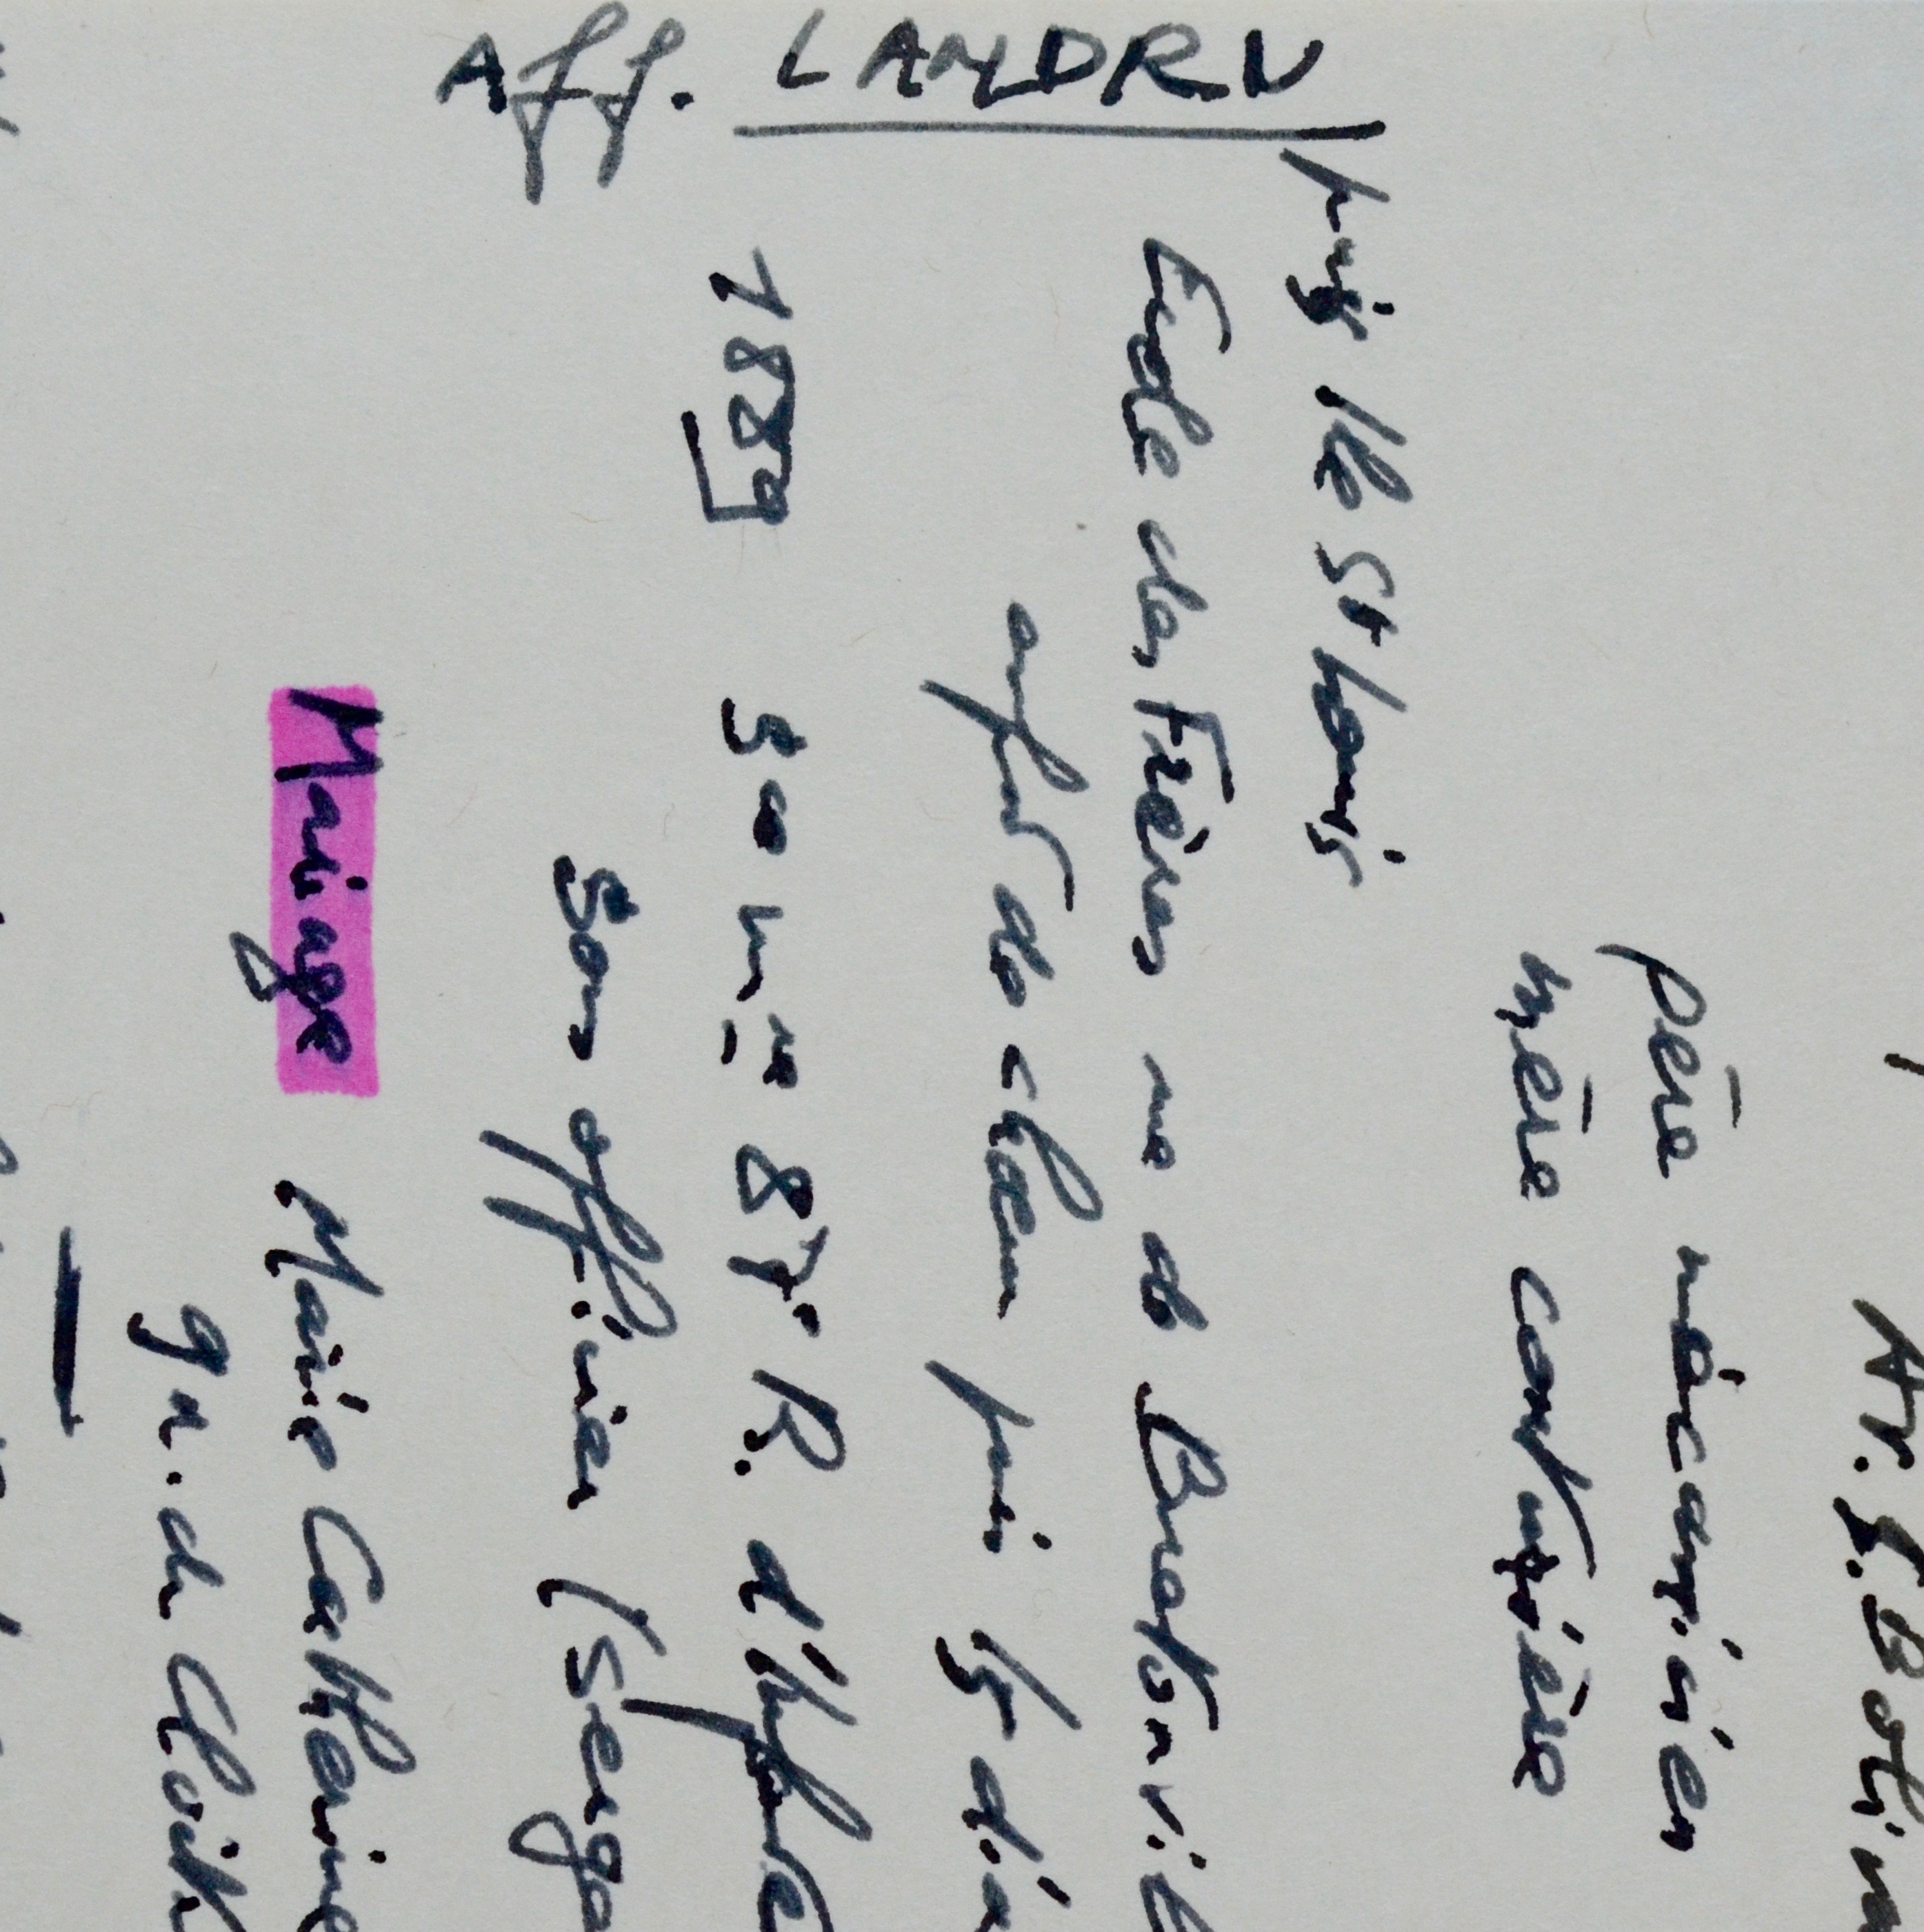 Aff. LANDRU
Av. S. Botin
père mécanicien
mère couturière
puis Ile St Louis
Ecole des Frères rue de Bretonvil
enft de chœur puis ss dia
1889 Somme 87. R. d'Infante
Sous officier (Serge
Mariage Marie Catherine
gn. du Cloît